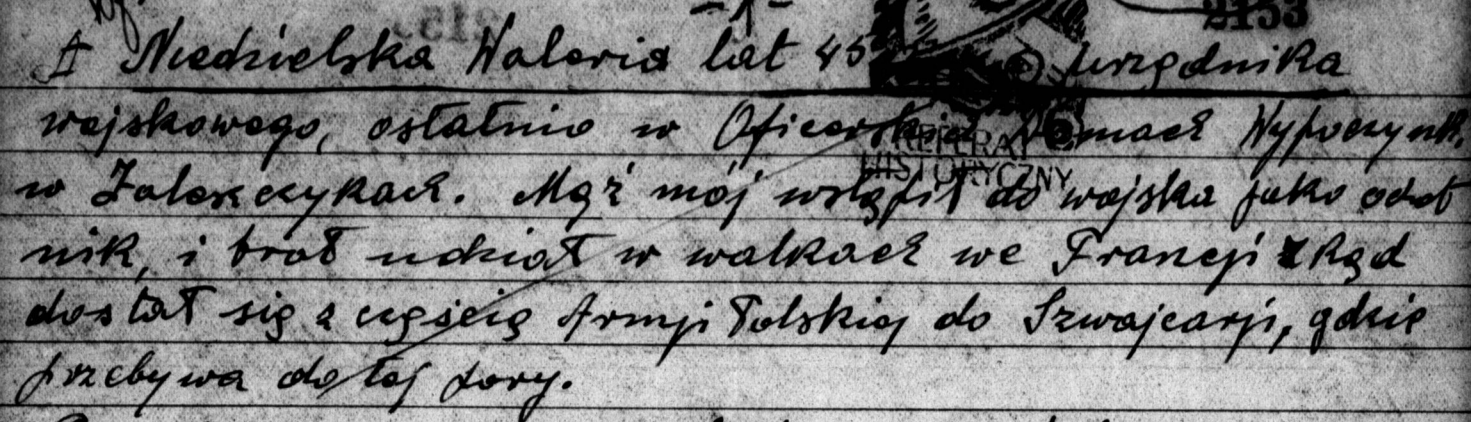 2153
I Niedzielska Waleria lat 45 urzędnika
wojskowego, ostatnio w Oficerskich Domach Wypoczynk.
REFERAT
HISTORYCZNY
w Zaleszczykach. Mąż mój wstąpił do wojska jako ochot
nik, i brał udział w walkach we Francji skąd
dostał się z częścią Armji Polskiej do Szwajcarji, gdzie
przebywa do tej pory.